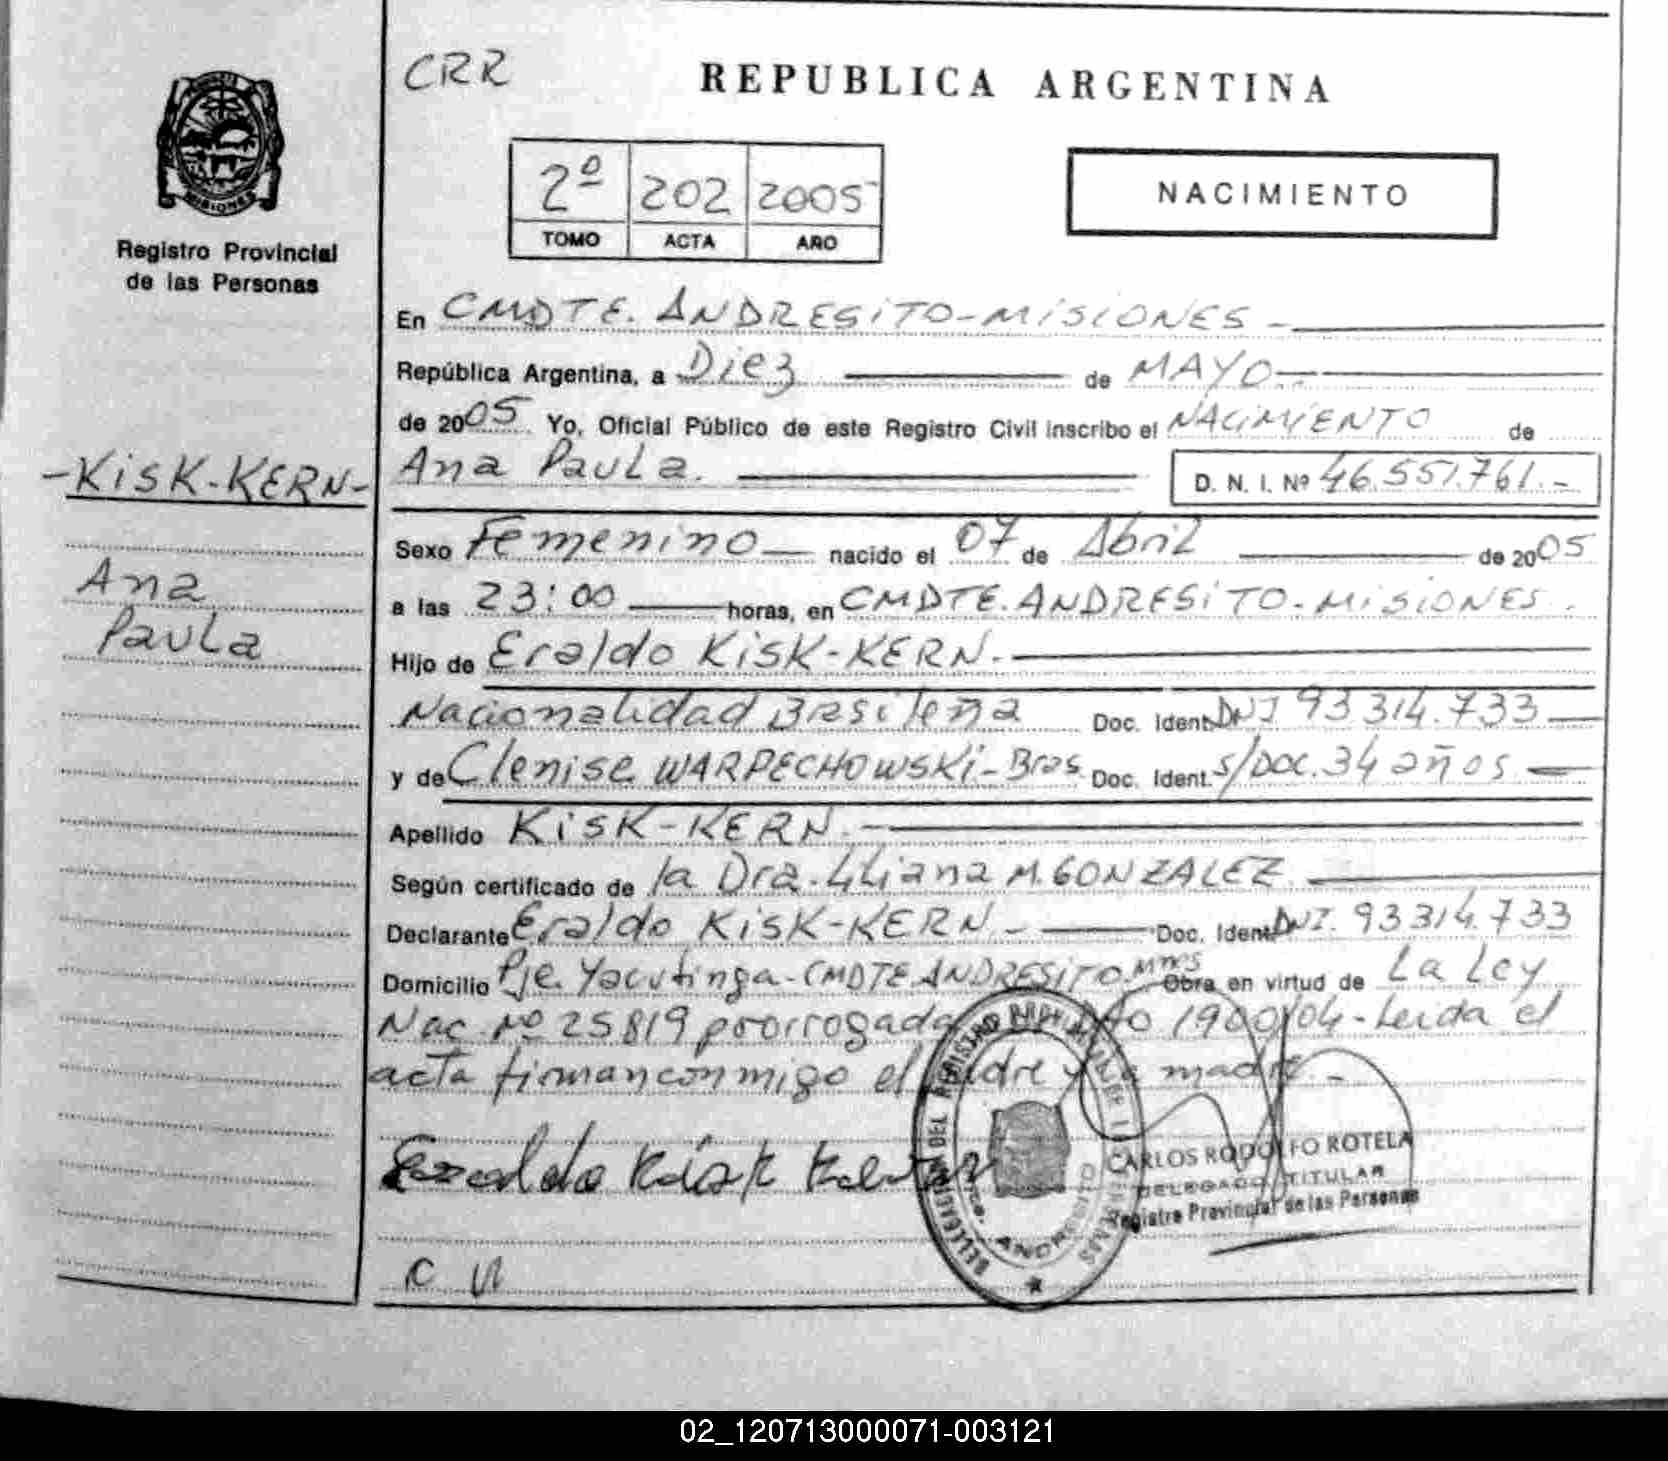 CRR
REPUBLICA ARGENTINA
MISIONES
Registro Provincial
de las Personas
2º 202 2005
TOMO ACTA AÑO
NACIMIENTO
En CMDTE. ANDRESITO-MISIONES -
República Argentina, a Diez de MAYO
de 2005 Yo, Oficial Público de este Registro Civil inscribo el NACIMIENTO de
-KISK-KERN-
Ana Paula. D. N. I. Nº 46.551.761.-
Sexo Femenino nacido el 07 de Abril de 2005
Ana
Paula
a las 23:00 horas, en CMDTE. ANDRESITO-MISIONES.
Hijo de Eraldo KISK-KERN.
Nacionalidad Brasileña Doc. Ident. DNI 93 314.733
y de Clenise WARPECHOWSKI-Bras. Doc. Ident. s/Doc. 34 años
Apellido KISK-KERN.
Según certificado de la Dra. Liliana M. GONZALEZ
Declarante Eraldo KISK-KERN - Doc. Ident. DNI. 93314.733
Domicilio Pje. Yacutinga-CMDTE ANDRESITO. Mnes Obra en virtud de La Ley
Nac. Nº 25819 prorrogada 1900/04-Leida el
acta firman conmigo el padre y la madre.-
Eraldo Kisk Kern
CARLOS RODOLFO ROTELA
DELEGADO TITULAR
Registro Provincial de las Personas
ANDRESITO
02_120713000071-003121